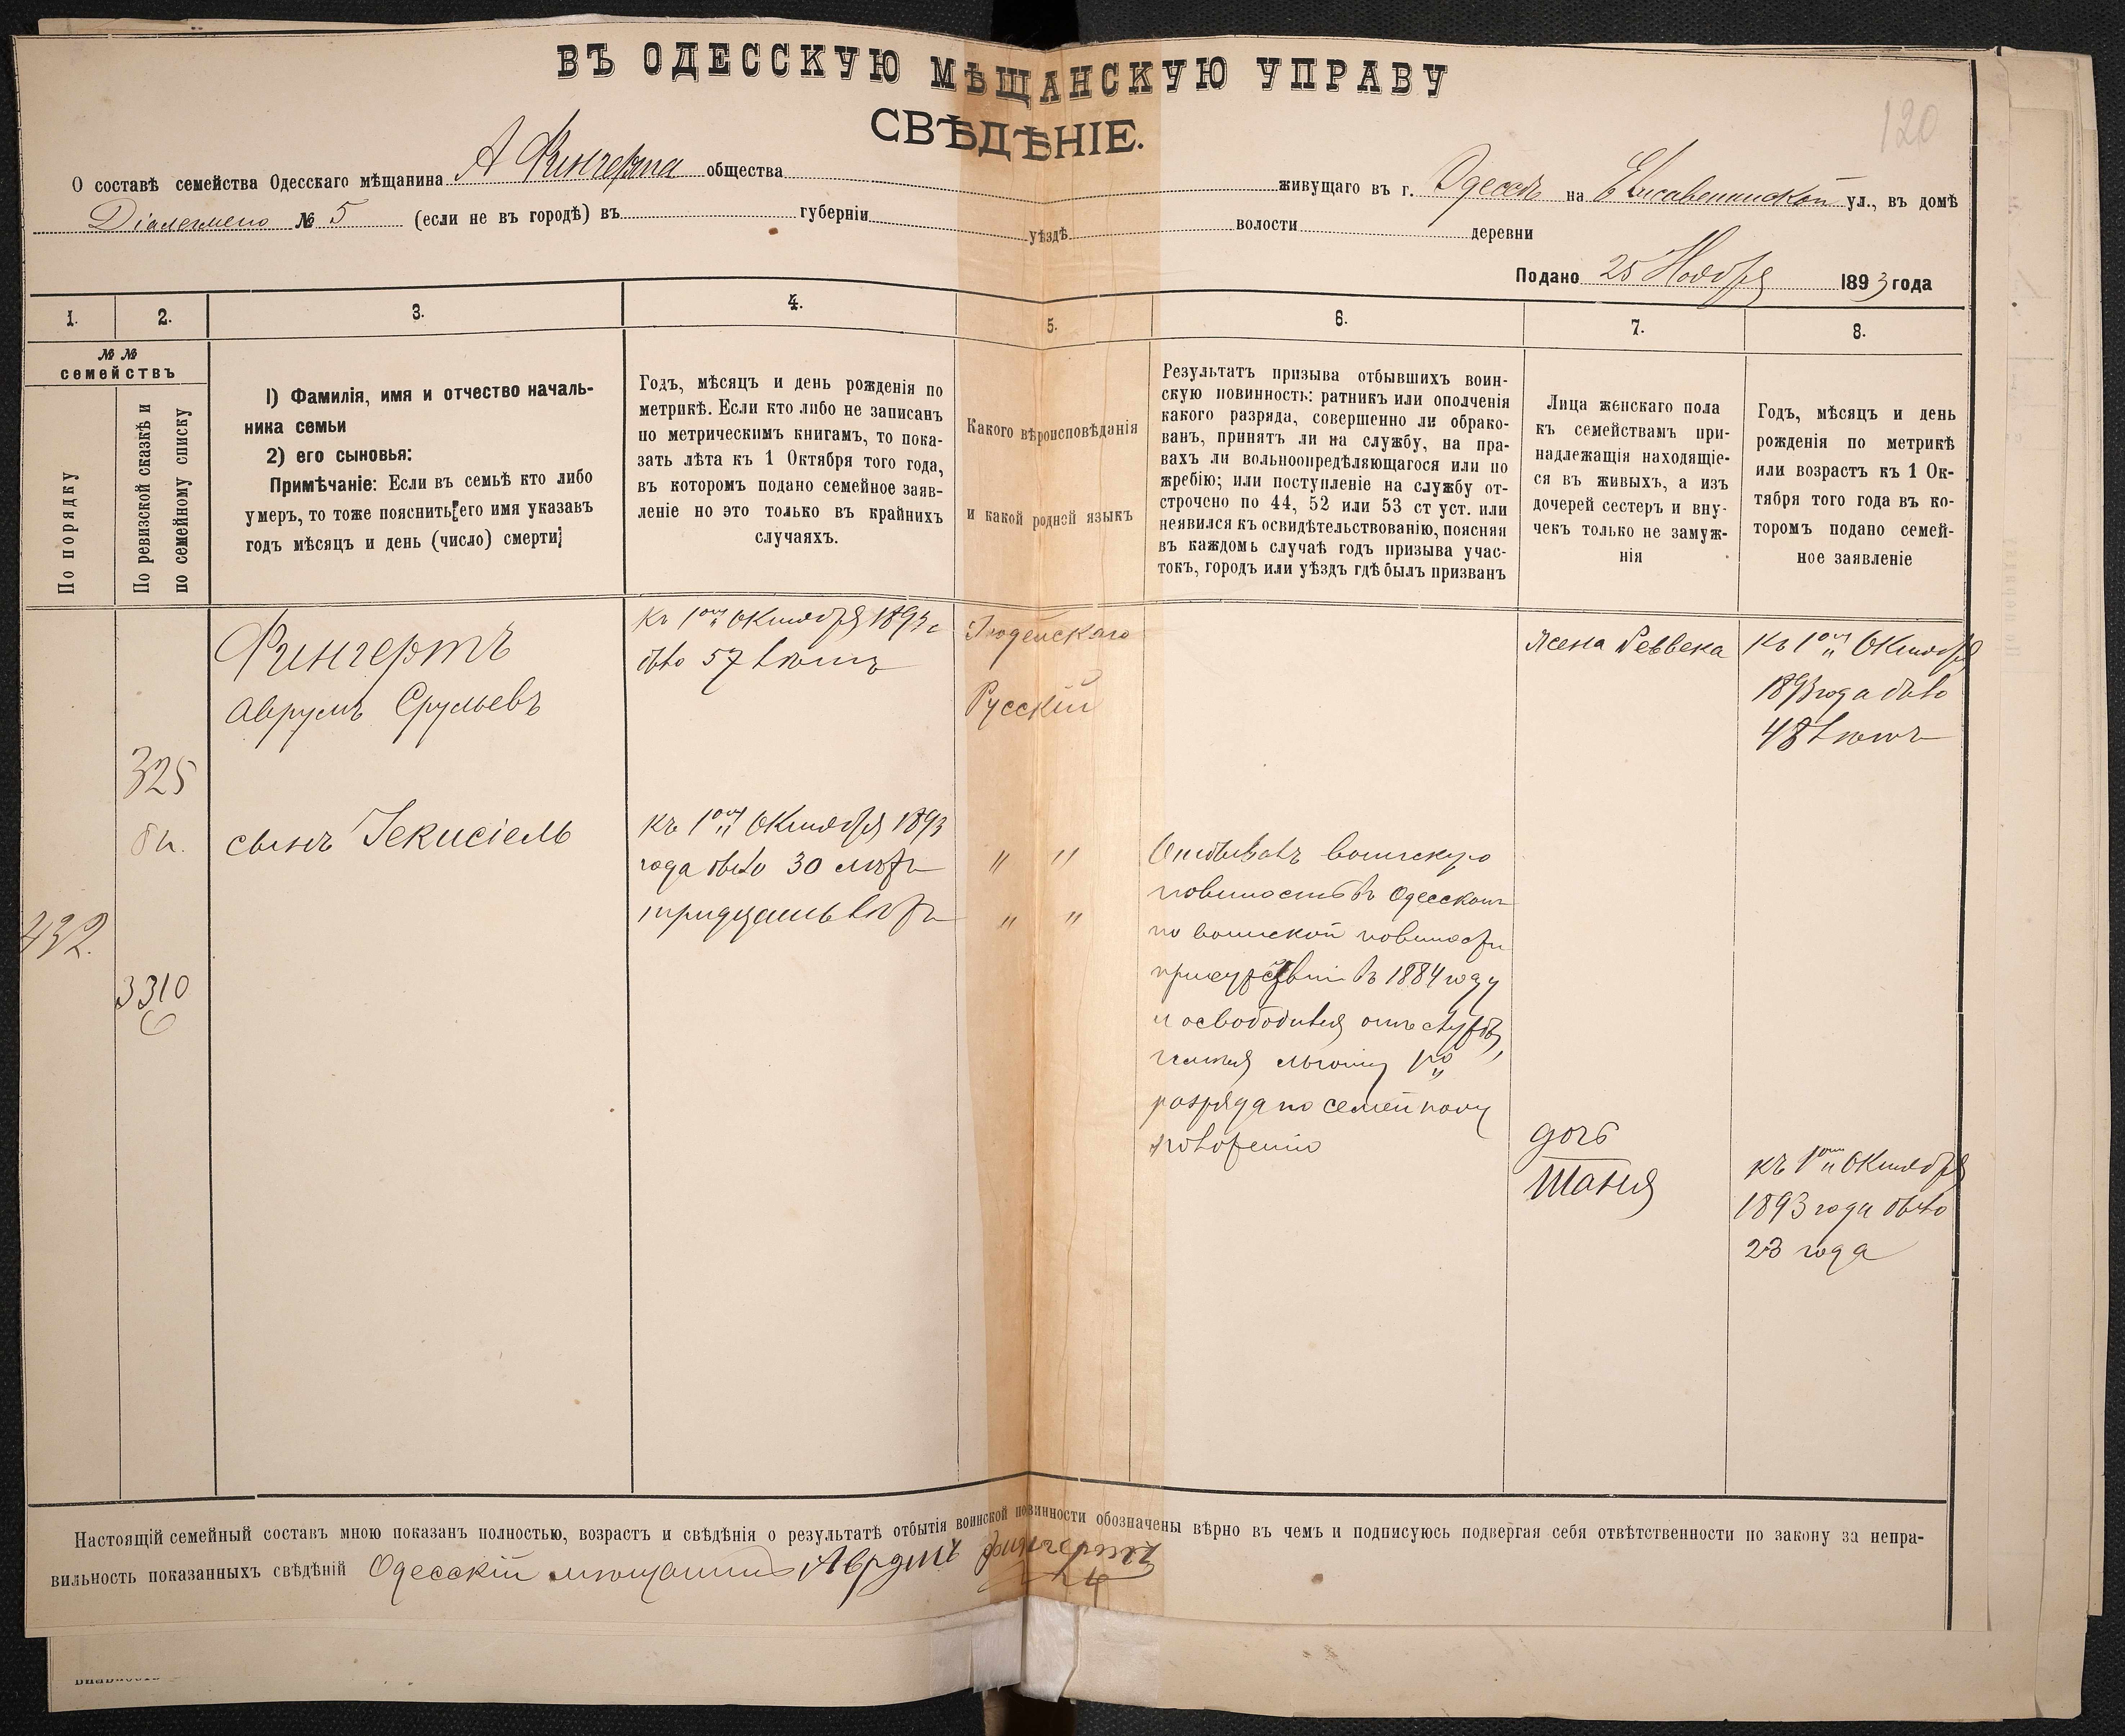 120
ВЪ ОДЕССКУЮ МѢЩАНСКУЮ УПРАВУ
СВѢДѢНІЕ.
О составѣ семейства Одесскаго мѣщанина А Фингерта общества живущаго въ г. Одессѣ на Елисаветинской ул., въ домѣ
№ 5 (если не въ городѣ) въ губерніи уѣздѣ волости деревни
Подано 25 Ноября 1893 года
1.
2.
3.
4.
5.
6.
7.
8.
№ №
семействъ
По порядку
По ревизской сказкѣ и
по семейному списку
1) Фамилія, имя и отчество началь-
ника семьи
2) его сыновья:
Примѣчаніе: Если въ семьѣ кто либо
умеръ, то тоже пояснить его имя указавъ
годъ мѣсяцъ и день (число) смерти;
Годъ, мѣсяцъ и день рожденія по
метрикѣ. Если кто либо не записанъ
по метрическимъ книгамъ, то пока-
зать лѣта къ 1 Октября того года,
въ которомъ подано семейное заяв-
леніе но это только въ крайнихъ
случаяхъ.
Какого вѣроисповѣданія
и какой родней языкъ
Результатъ призыва отбывшихъ воин-
скую повинность: ратникъ или ополченія
какого разряда, совершенно ли обрако-
ванъ, принятъ ли на службу, на пра-
вахъ ли вольноопредѣляющагося или по
жребію; или поступленіе на службу от-
строчено по 44, 52 или 53 ст уст. или
неявился къ освидѣтельствованію, поясняя
въ каждомъ случаѣ годъ призыва учас-
токъ, городъ или уѣздъ гдѣ былъ призванъ
Лица женскаго пола
къ семействамъ при-
надлежащія находящіе-
ся въ живыхъ, а изъ
дочерей сестеръ и вну-
чекъ только не замуж-
нія
Годъ, мѣсяцъ и день
рожденія по метрикѣ
или возрастъ къ 1 Ок-
тября того года въ ко-
торомъ подано семей-
ное заявленіе
432.
325
3310
6
Фингертъ
Аврумъ Срулевъ
къ 1ому Октября 1893 г
было 57 лѣтъ
Іюдейскаго
Русскій
жена Ревека
къ 1ому Октября
1893 года было
48 лѣтъ
сынъ Іекисіель
къ 1ому Октября 1893
года было 30 лѣтъ
тридцать лѣтъ
" "
" "
Отбывалъ воинскую
повиность въ Одесскомъ
по воинской повиности
присутствіи въ 1884 году
и освободился отъ службы,
льготы 1го
разряда по семейному
дочь
Шаня
къ 1ому Октября
1893 года было
23 года
Настоящій семейный составъ мною показанъ полностью, возрастъ и свѣдѣнія о результатѣ отбытія воинской повинности обозначены вѣрно въ чемъ и подписуюсь подвергая себя отвѣтственности по закону за непра-
вильность показанныхъ свѣдѣній Одесскій мѣщанинъ Аврумъ Фингертъ